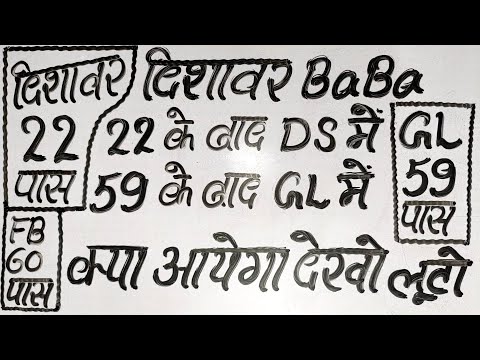 दिशावर
22
पास
दिशावर BaBa
22 के बाद DS में
59 के बाद GL में
GL
59
पास
FB
60
पास
क्या आयेगा देखो लूटो